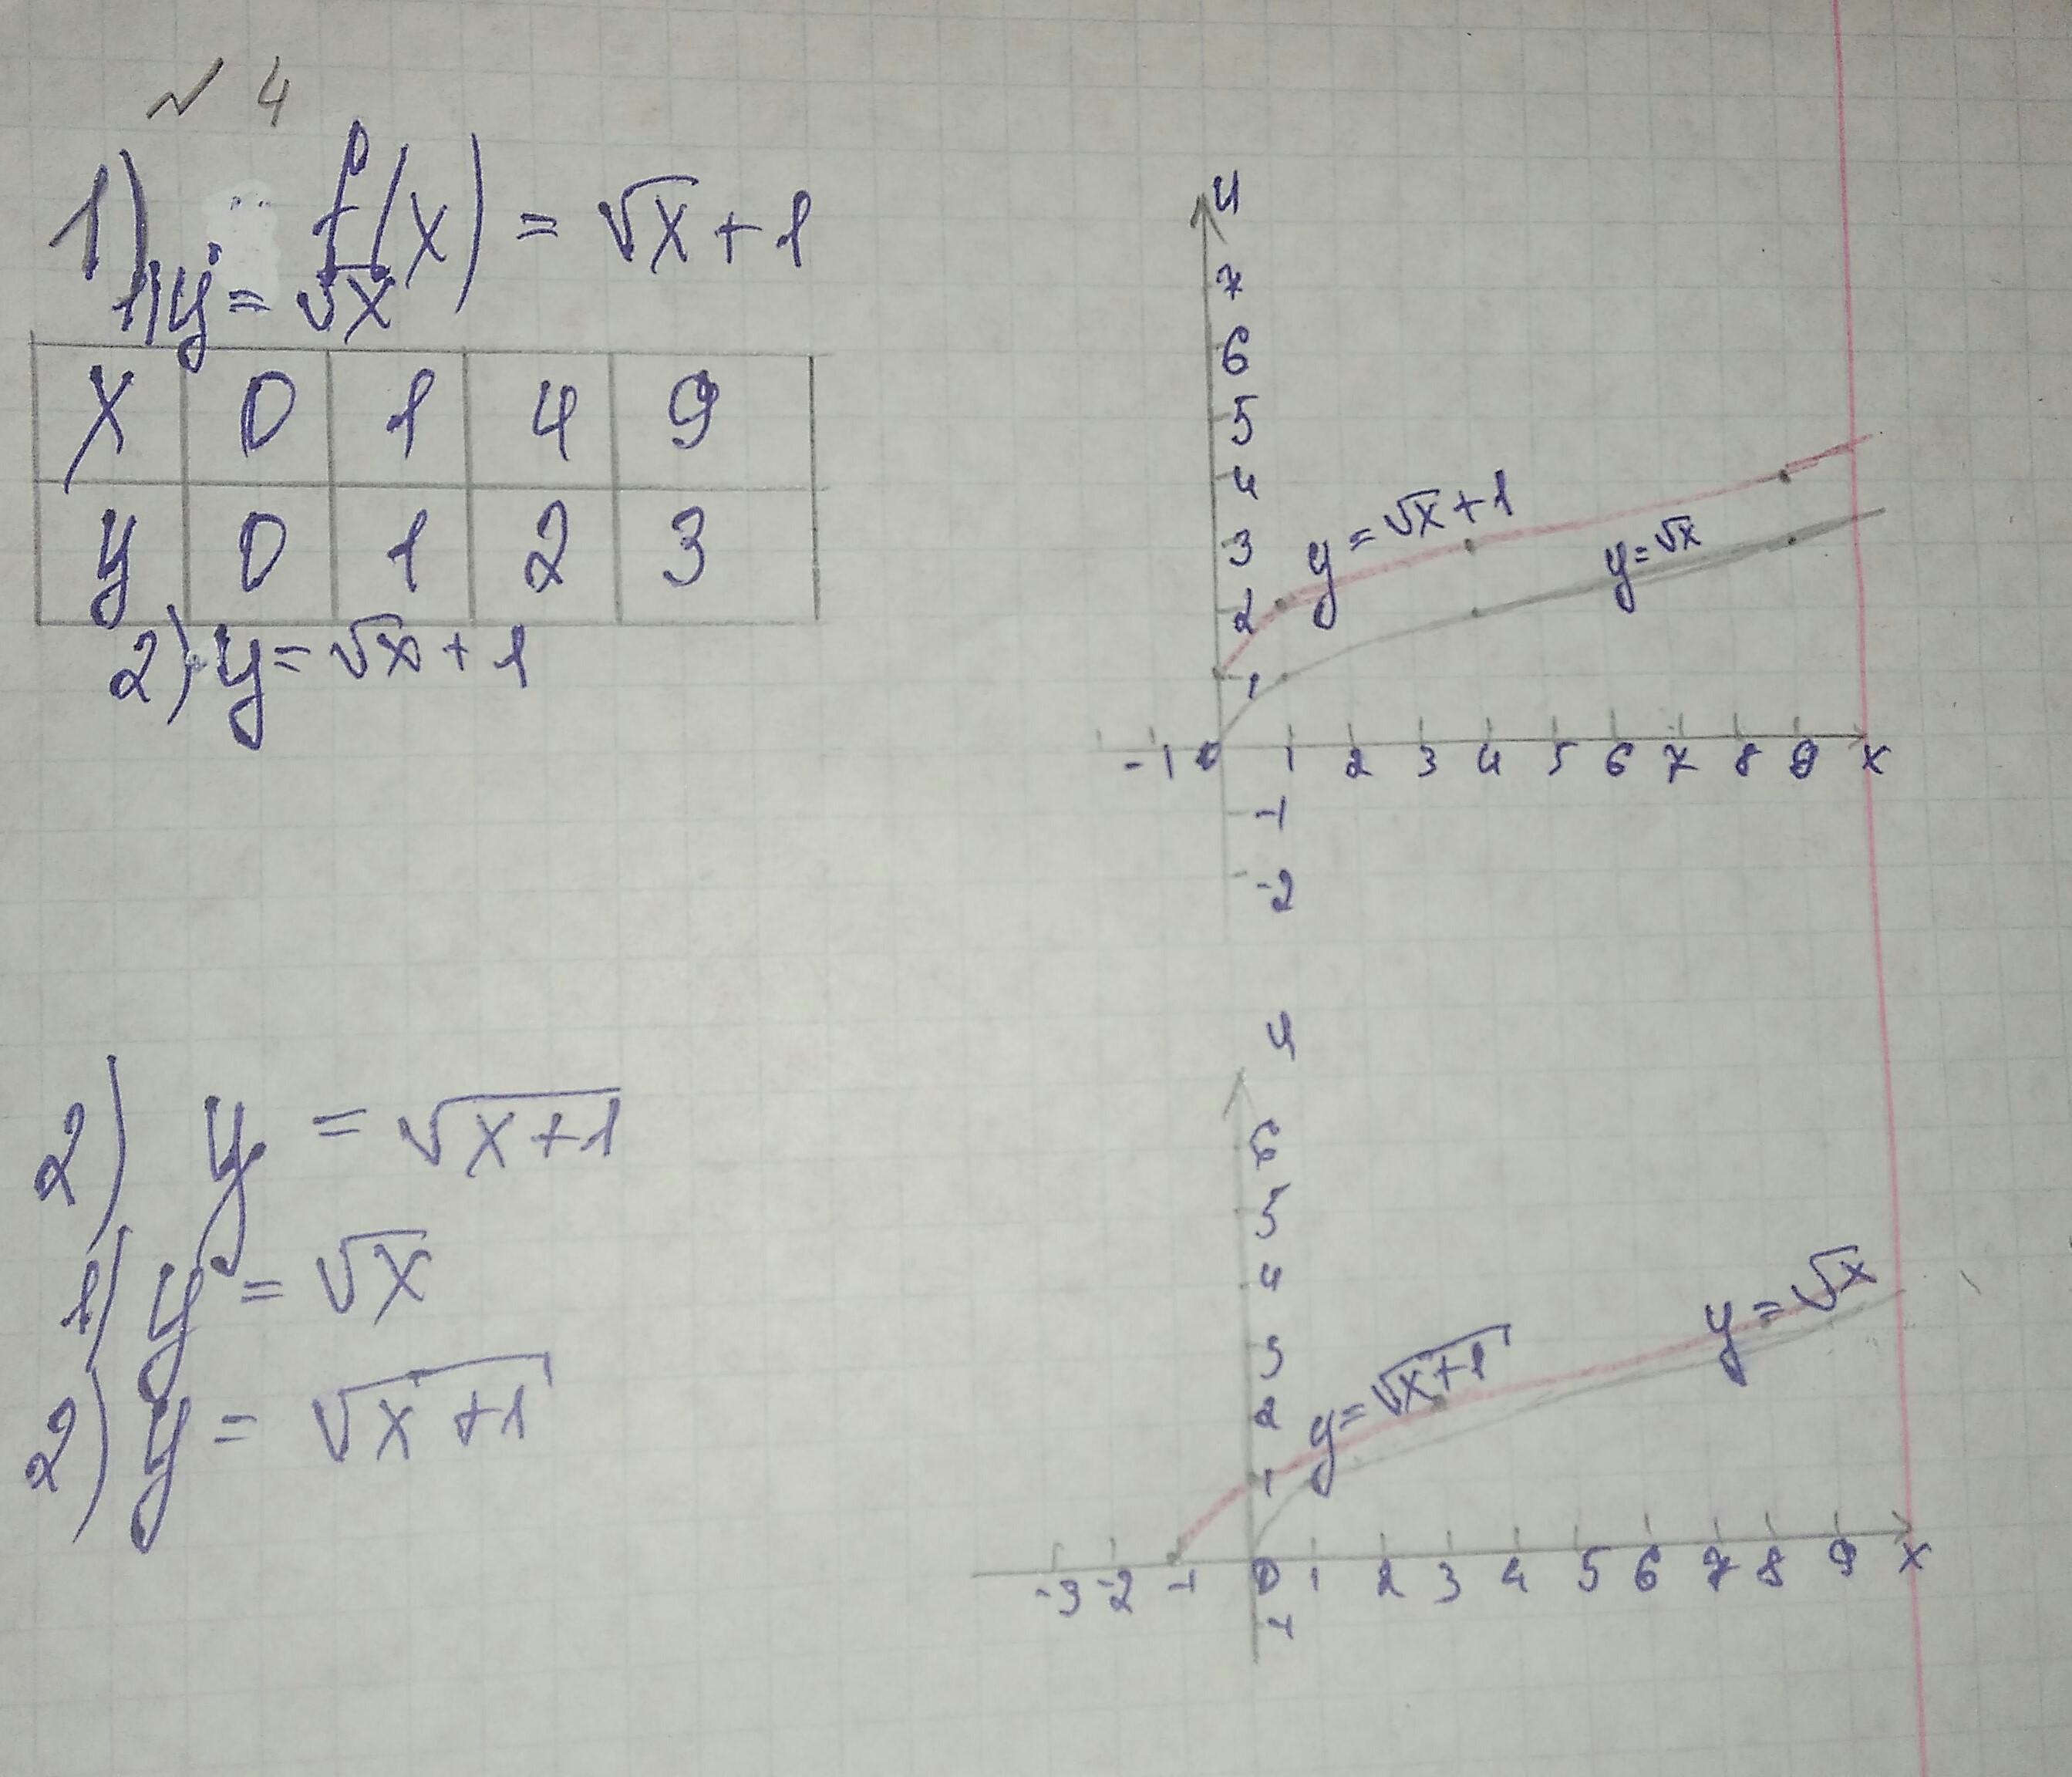 № 4
1) f(x) = √x + 1
1) y = √x
x 0 1 4 9
y 0 1 2 3
2) y = √x + 1
y
7
6
5
4
3
2
1
y = √x + 1
y = √x
-1 0 1 2 3 4 5 6 7 8 9 x
-1
-2
2) y = √(x+1)
1) y = √x
2) y = √(x+1)
y
6
5
4
3
2
1
y = √(x+1)
y = √x
-3 -2 -1 0 1 2 3 4 5 6 7 8 9 x
-1